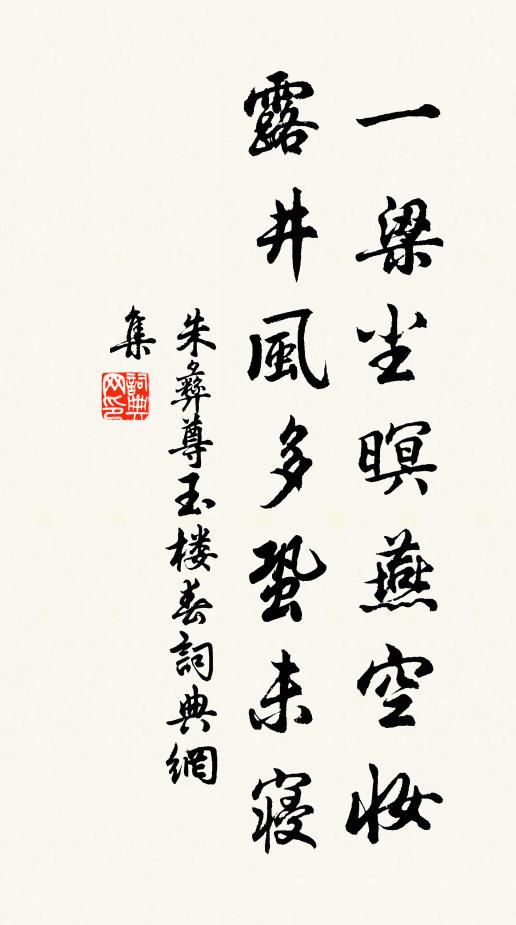 一梁尘暝燕空妆
露井風多蛩未寝
朱彝尊玉楼春詞典網
集
詞典
网印